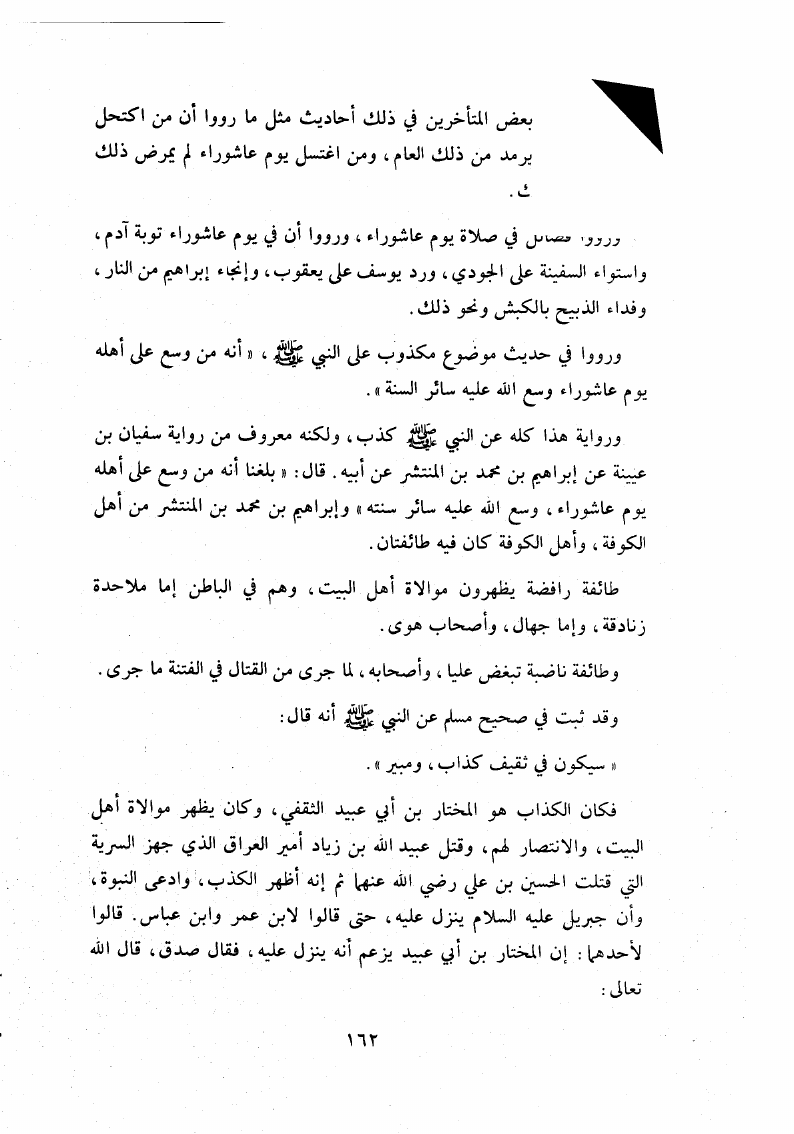 بعض المتأخرين في ذلك أحاديث مثل ما رووا أن من اكتحل
برمد من ذلك العام، ومن اغتسل يوم عاشوراء لم يمرض ذلك
في صلاة يوم عاشوراء، ورووا أن في يوم عاشوراء توبة آدم،
واستواء السفينة على الجودي، ورد يوسف على يعقوب، وإنجاء إبراهيم من النار،
وفداء الذبيح بالكبش ونحو ذلك.
ورووا في حديث موضوع مكذوب على النبي ﷺ، « أنه من وسع على أهله
يوم عاشوراء وسع الله عليه سائر السنة ».
ورواية هذا كله عن النبي ﷺ كذب، ولكنه معروف من رواية سفيان بن
عيينة عن إبراهيم بن محمد بن المنتشر عن أبيه. قال: « بلغنا أنه من وسع على أهله
يوم عاشوراء، وسع الله عليه سائر سنته » وإبراهيم بن محمد بن المنتشر من أهل
الكوفة، وأهل الكوفة كان فيه طائفتان.
طائفة رافضة يظهرون موالاة أهل البيت، وهم في الباطن إما ملاحدة
زنادقة، وإما جهال، وأصحاب هوى.
وطائفة ناضبة تبغض عليا، وأصحابه، لما جرى من القتال في الفتنة ما جرى.
وقد ثبت في صحيح مسلم عن النبي ﷺ أنه قال:
« سيكون في ثقيف كذاب، ومبير ».
فكان الكذاب هو المختار بن أبي عبيد الثقفي، وكان يظهر موالاة أهل
البيت، والانتصار لهم، وقتل عبيد الله بن زياد أمير العراق الذي جهز السرية
التي قتلت الحسين بن علي رضي الله عنهما ثم إنه أظهر الكذب، وادعى النبوة،
وأن جبريل عليه السلام ينزل عليه، حتى قالوا لابن عمر وابن عباس. قالوا
لأحدهما: إن المختار بن أبي عبيد يزعم أنه ينزل عليه، فقال صدق، قال الله
تعالى:
١٦٢